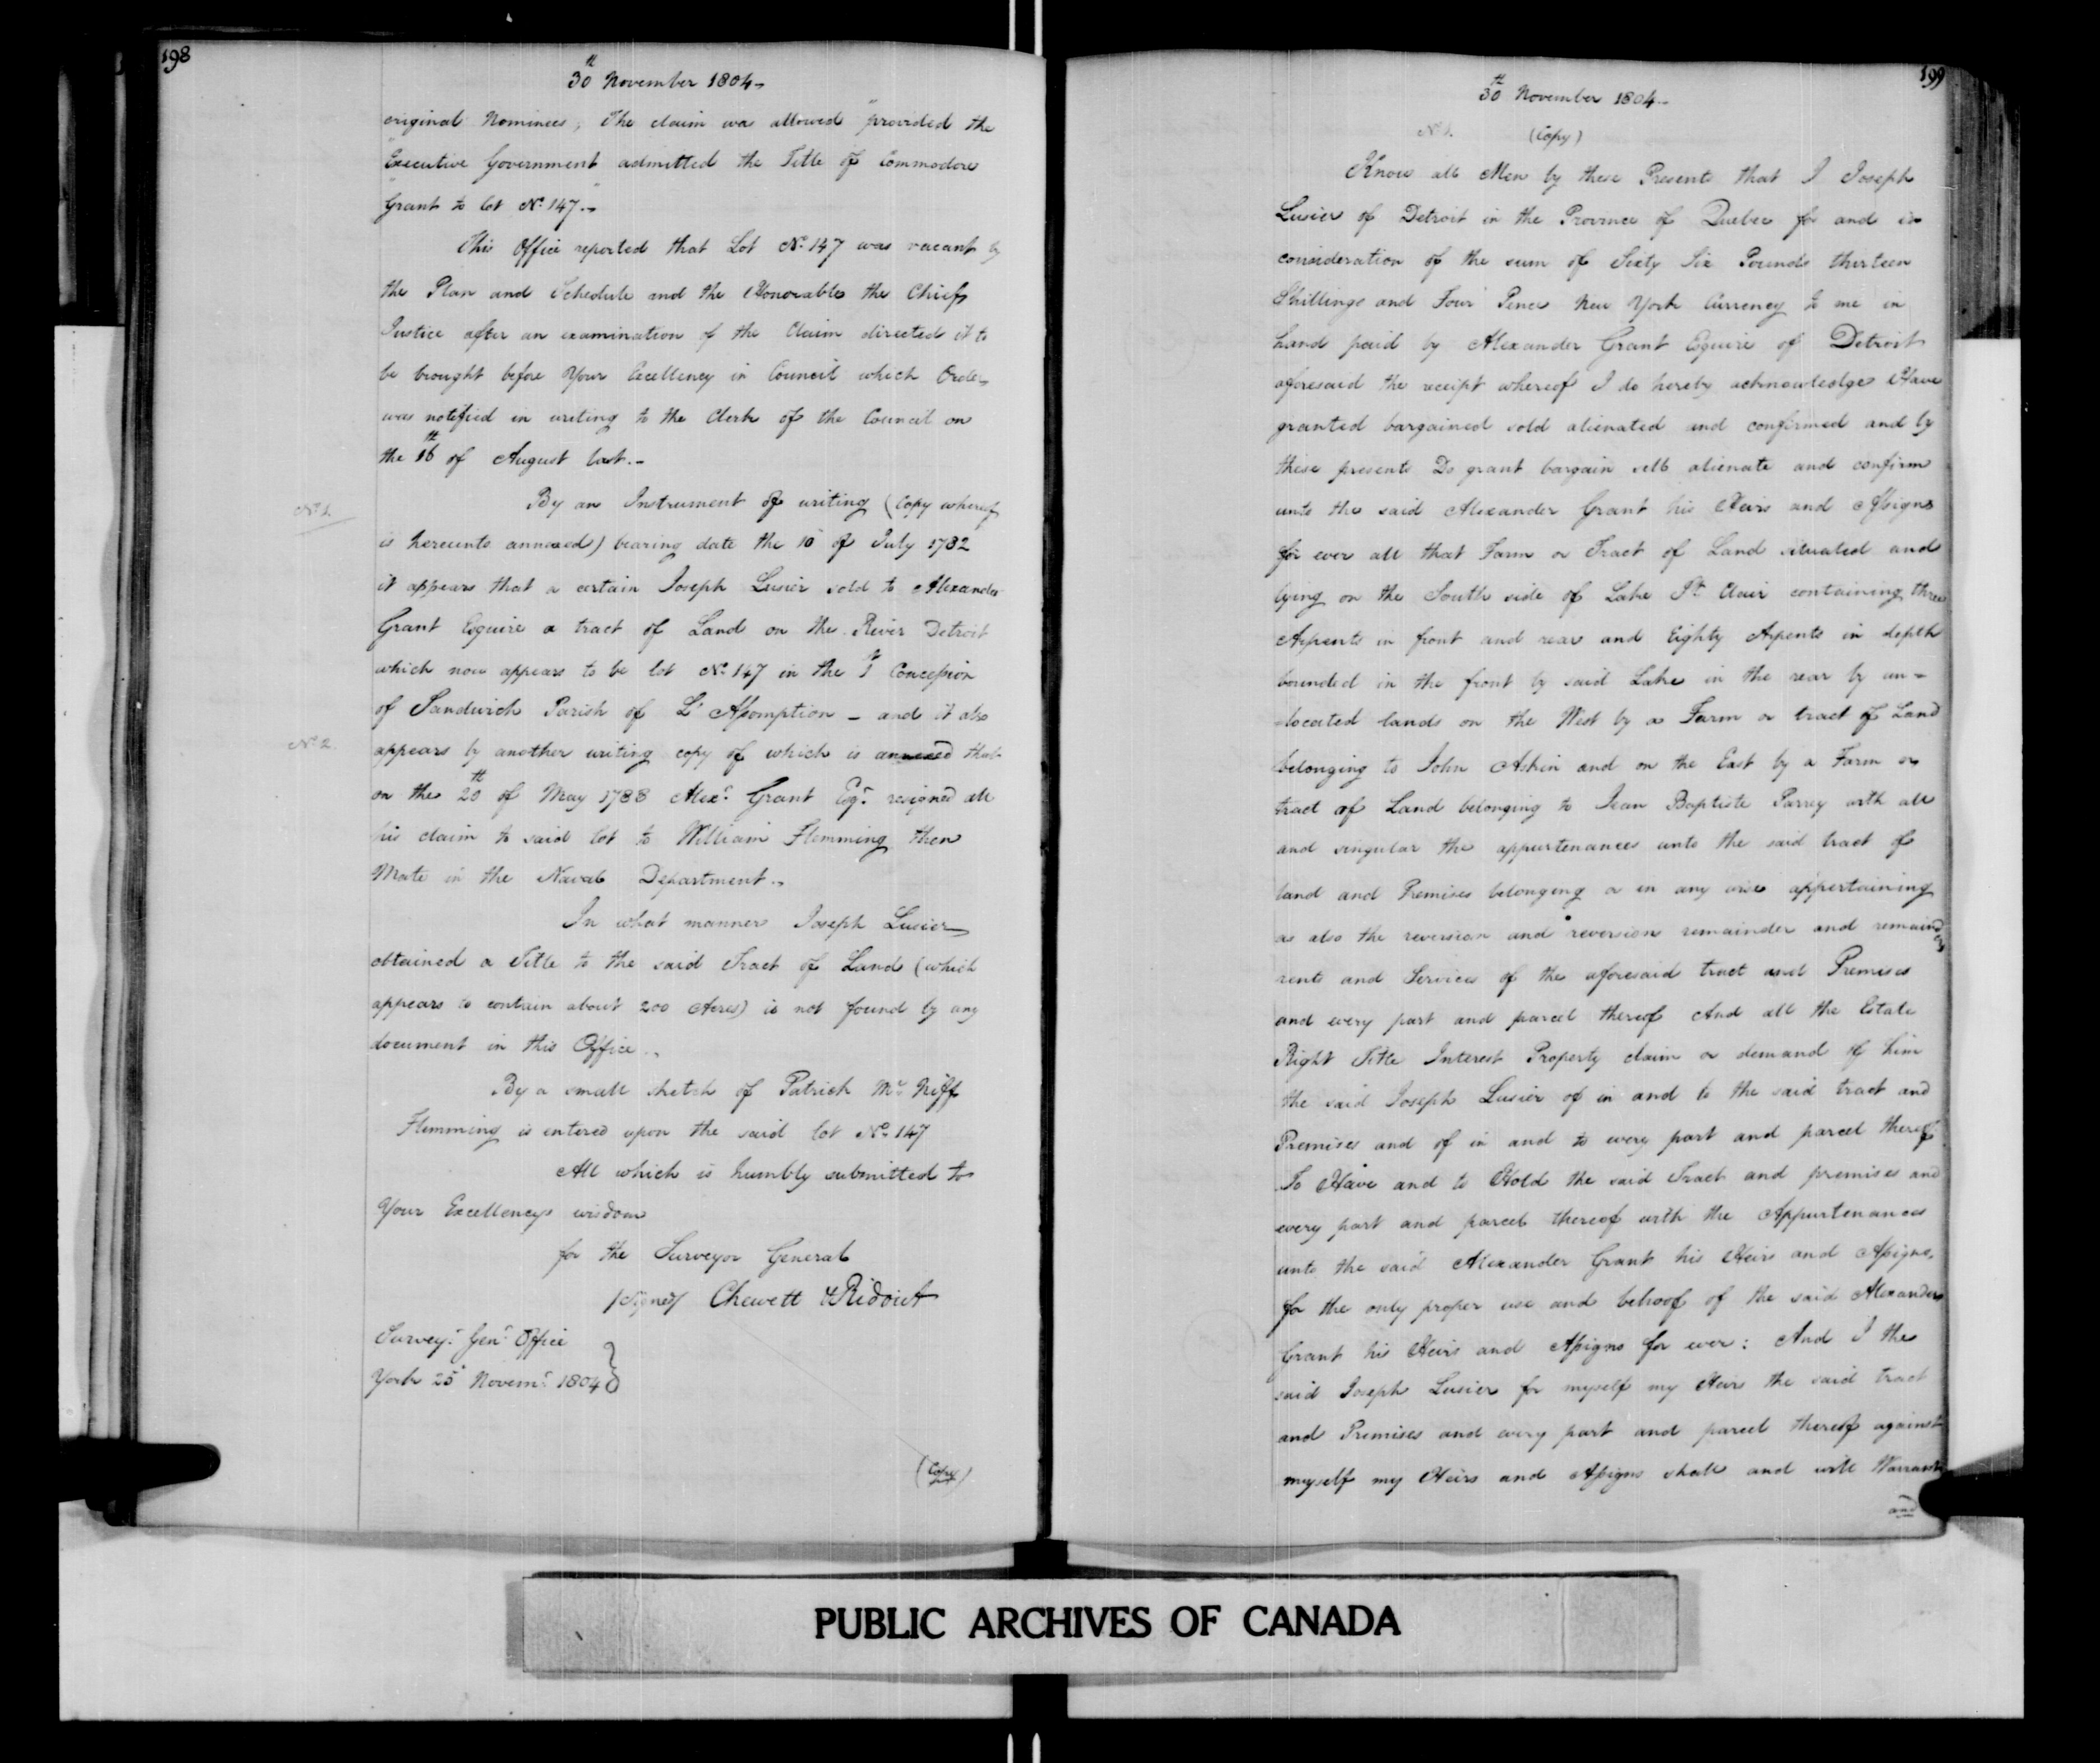 198
30th November 1804 —
original Nominees, The claim was allowed "provided the
"Executive Government admitted the Title of Commodore
"Grant to lot No. 147." —
This Office reported that Lot No. 147 was vacant by
the Plan and Schedule and the Honorable the Chief
Justice after an examination of the Claim directed it to
be brought before Your Excellency in Council which Order
was notified in writing to the Clerk of the Council on
the 16th of August last. —
No. 1.
By an Instrument of writing (Copy whereof
is hereunto annexed) bearing date the 10 of July 1782
it appears that a certain Joseph Lusier sold to Alexander
Grant Esquire a tract of Land on the River Detroit
which now appears to be lot No. 147 in the 1st Concession
of Sandwich Parish of L'Assomption — and it also
No. 2.
appears by another writing copy of which is annexed that
on the 20th of May 1788 Alexr. Grant Esqr. resigned all
his claim to said lot to William Flemming then
Mate in the Naval Department. —
In what manner Joseph Lusier
obtained a Title to the said Tract of Land (which
appears to contain about 200 Acres) is not found by any
document in this Office. —
By a small sketch of Patrick McNiff
Flemming is entered upon the said lot No. 147
All which is humbly submitted to
Your Excellencys wisdom
for the Surveyor General
/signed/ Chewett & Ridout
Surveyr. Genl. Office
York 25 Novemr. 1804 }
(Copy)
199
30th November 1804 —
No. 1. (Copy)
Know all Men by these Presents that I Joseph
Lusier of Detroit in the Province of Quebec for and in
consideration of the sum of Sixty Six Pounds thirteen
Shillings and Four Pence New York Currency to me in
hand paid by Alexander Grant Esquire of Detroit
aforesaid the receipt whereof I do hereby acknowledge Have
granted bargained sold alienated and confirmed and by
these presents Do grant bargain sell alienate and confirm
unto the said Alexander Grant his Heirs and Assigns
for ever all that Farm or Tract of Land situated and
lying on the South side of Lake St. Clair containing three
Arpents in front and rear and Eighty Arpents in depth
bounded in the front by said Lake in the rear by un=
=located lands on the West by a Farm or tract of Land
belonging to John Askin and on the East by a Farm or
tract of Land belonging to Jean Baptiste Parrey with all
and singular the appurtenances unto the said tract of
land and Premises belonging or in any wise appertaining
as also the reversion and reversions remainder and remainders
rents and Services of the aforesaid tract and Premises
and every part and parcel thereof And all the Estate
Right Title Interest Property claim or demand of him
the said Joseph Lusier of in and to the said tract and
Premises and of in and to every part and parcel thereof
To Have and to Hold the said Tract and premises and
every part and parcel thereof with the Appurtenances
unto the said Alexander Grant his Heirs and Assigns,
for the only proper use and behoof of the said Alexander
Grant his Heirs and Assigns for ever: And I the
said Joseph Lusier for myself my Heirs the said tract
and Premises and every part and parcel thereof against
myself my Heirs and Assigns shall and will Warrant
and
PUBLIC ARCHIVES OF CANADA